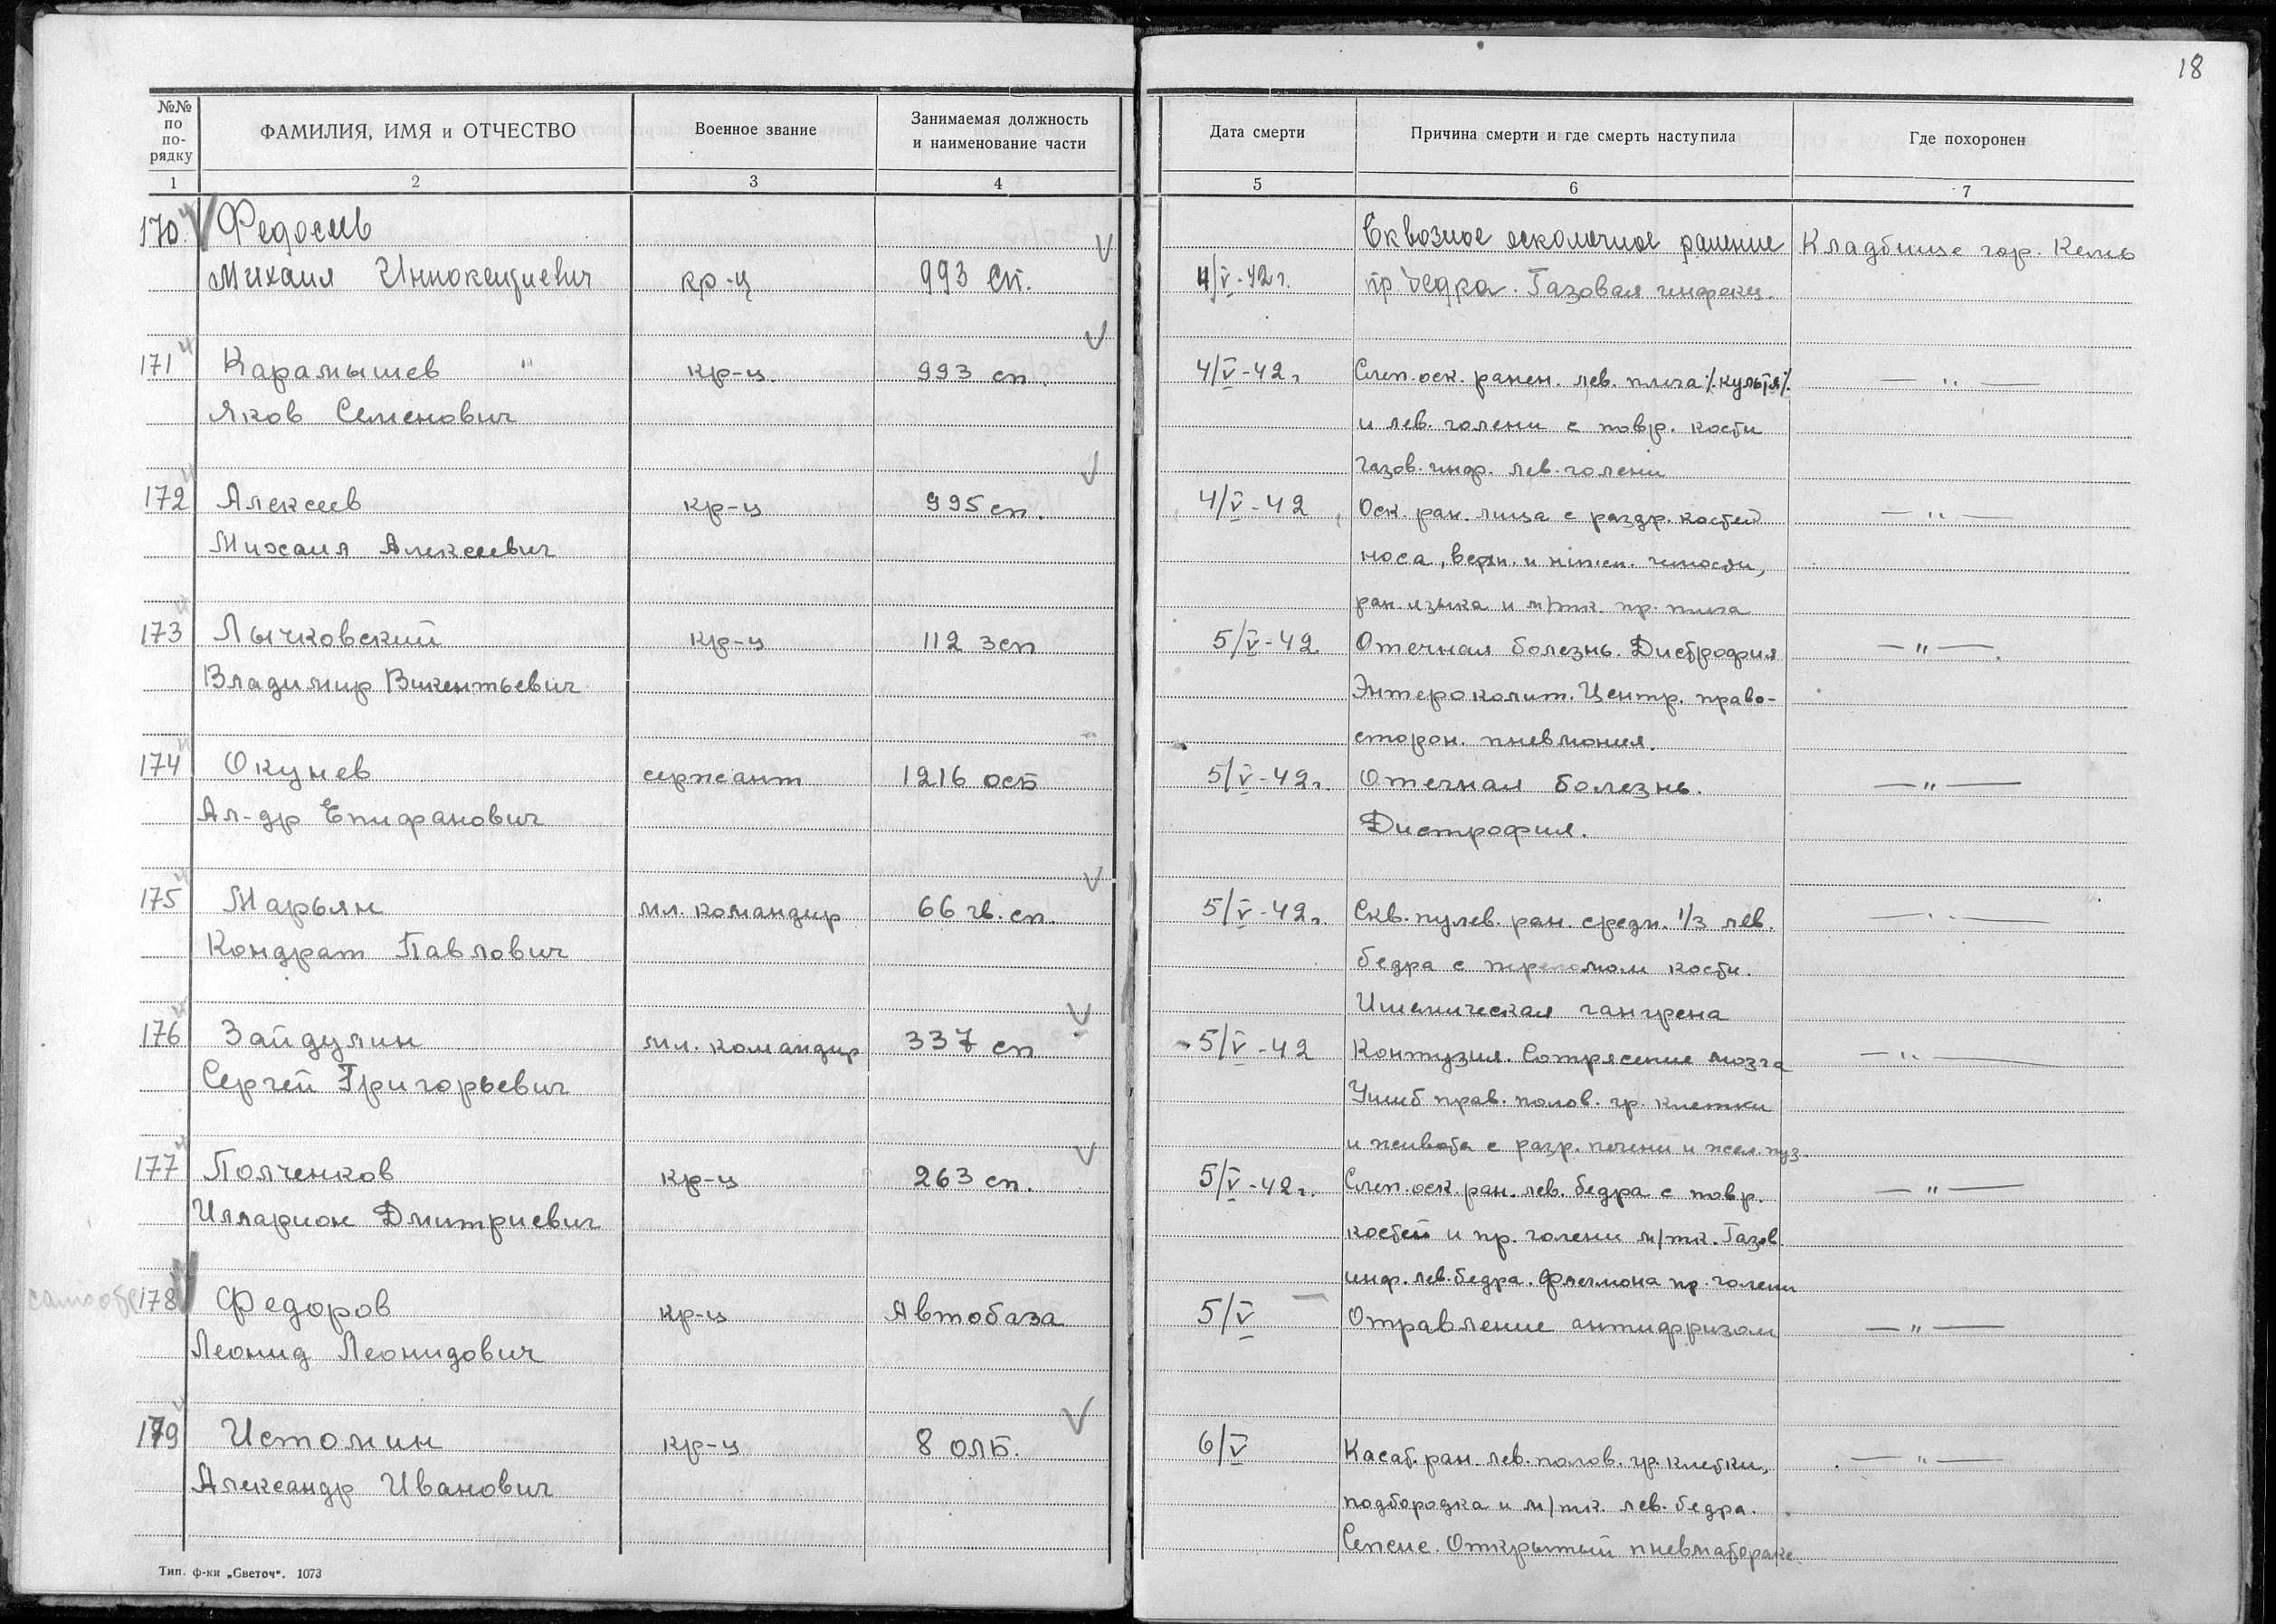 18
№№ по по- рядку | ФАМИЛИЯ, ИМЯ и ОТЧЕСТВО | Военное звание | Занимаемая должность и наименование части | Дата смерти | Причина смерти и где смерть наступила | Где похоронен
1 | 2 | 3 | 4 | 5 | 6 | 7
170. Федосеев | Сквозное осколочное ранение | Кладбище гор. Кемь
Михаил Иннокентиевич | кр-ц | 993 сп. | 4/V-42г. | пр. бедра. Газовая инфекц.
171 Карамышев | кр-ц. | 993 сп. | 4/V-42г | Слеп. оск. ранен. лев. плеча /культя/. | — " —
Яков Семенович | и лев. голени с повр. кости
газов. инф. лев. голени
172 Алексеев | кр-ц | 995 сп. | 4/V-42 | Оск. ран. лица с раздр. костей | — " —
Михаил Алексеевич | носа, верхн. и нижн. челюсти,
ран. языка и м/тк. пр. плеча
173 Лычковский | кр-ц | 112 зсп | 5/V-42 | Отечная болезнь. Дистрофия | — " —
Владимир Викентьевич | Энтероколит. Центр. право-
сторон. пневмония.
174 Окунев | сержант | 1216 осб | 5/V-42г. | Отечная болезнь. | — " —
Ал-др Епифанович | Дистрофия.
175 Марьян | мл. командир | 66 гв. сп. | 5/V-42г. | Скв. пулев. ран. средн. 1/3 лев. | — " —
Кондрат Павлович | бедра с переломом кости.
Ишемическая гангрена
176 Зайдулин | мл. командир | 337 сп | 5/V-42 | Контузия. Сотрясение мозга | — " —
Сергей Григорьевич | Ушиб прав. полов. гр. клетки
и живота с разр. печени и жел. пуз.
177 Полченков | кр-ц | 263 сп. | 5/V-42г. | Слеп. оск. ран. лев. бедра с повр. | — " —
Илларион Дмитриевич | костей и пр. голени м/тк. Газов.
инф. лев. бедра. Флегмона пр. голени
178 Федоров | кр-ц | Автобаза | 5/V | Отравление антифризом | — " —
Леонид Леонидович
179 Истомин | кр-ц | 8 олб. | 6/V | Касат. ран. лев. полов. гр. клетки, | — " —
Александр Иванович | подбородка и м/тк. лев. бедра.
Сепсис. Открытый пневматоракс.
Тип. ф-ки „Светоч“. 1073